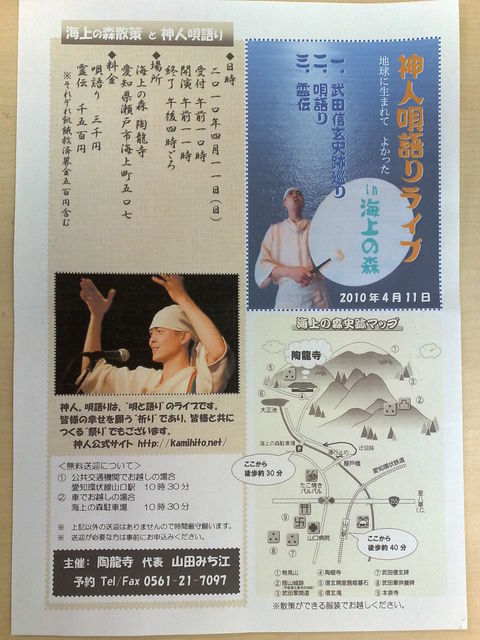 神人唄語りライブ
地球に生まれて よかった
in 海上の森
一、武田信玄史跡巡り
二、唄語り
三、霊伝
2010年4月11日
海上の森散策 と 神人唄語り
◆日時
二〇一〇年四月一一日（日）
受付 午前一〇時
開演 午前一一時
終了 午後四時ごろ
◆場所
海上の森 陶龍寺
愛知県瀬戸市海上町五〇七
◆料金
唄語り 三千円
霊伝 千五百円
※それぞれ飢餓救済募金五百円含む
神人。唄語りは、“唄と語り”のライブです。
皆様の幸せを願う“祈り”であり、皆様と共に
つくる“祭り”でもございます。
神人公式サイト http://kamihito.net/
＜無料送迎について＞
① 公共交通機関でお越しの場合
愛知環状線山口駅 10時30分
② 車でお越しの場合
海上の森駐車場 10時30分
※ 上記以外の送迎はありませんので時間厳守願います。
※ 送迎が必要な方は事前にお申込みください。
主催: 陶龍寺 代表 山田みち江
予約 Tel/Fax 0561-21-7097
海上の森史跡マップ
陶龍寺
①
②
③
④
⑤
⑥
大正池
海上の森駐車場
通り止め
迂回路
屋戸橋
愛知環状鉄道
ここから
徒歩約30分
たこ焼き
パルパル
山口病院
山口駅
ここから
徒歩約40分
⑦
⑧
⑨
①物見山
④陶龍寺
⑦武田信玄碑
⑤信玄側室善姫墓石
⑧武田軍供養碑
③武田軍間道
⑥信玄滝
⑨本泉寺
※散策ができる服装でお越しください。